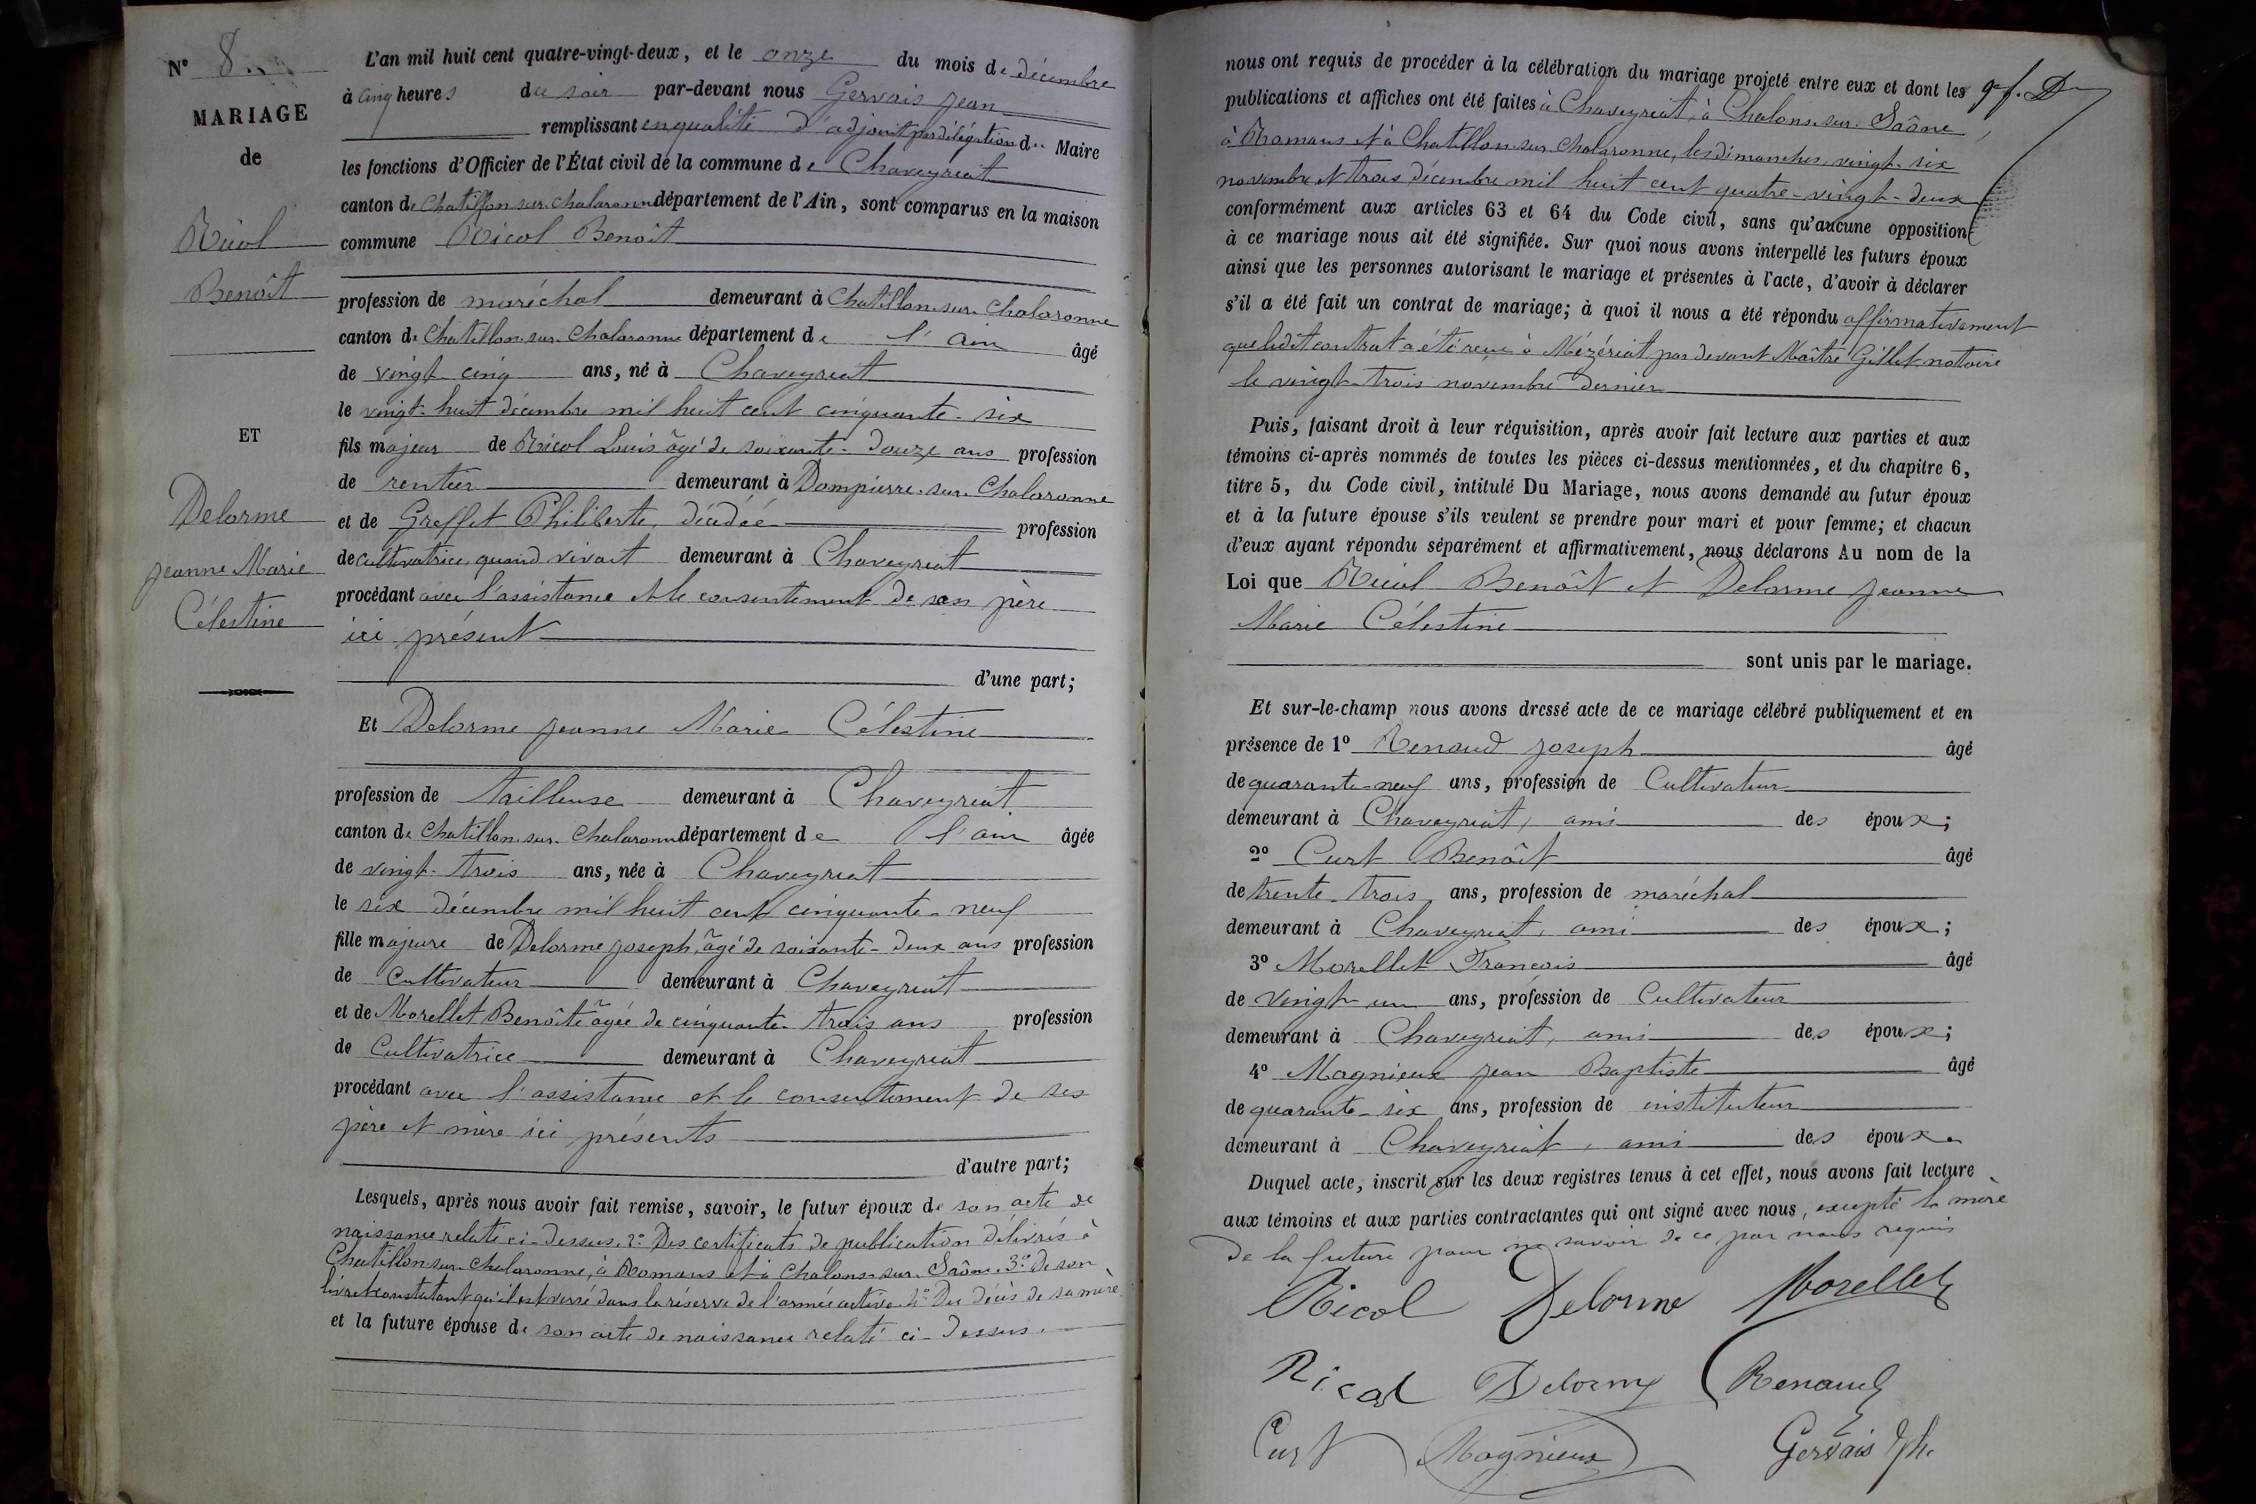 N° 8
MARIAGE
de
Ricol
Benoît
ET
Delorme
Jeanne Marie
Célestine
L'an mil huit cent quatre-vingt-deux, et le onze du mois de décembre
à cinq heures du soir par-devant nous Gervais Jean
remplissant en qualité d'adjoint par délégation du Maire
les fonctions d'Officier de l'État civil de la commune de Chaveyriat
canton de Chatillon sur Chalaronne département de l'Ain, sont comparus en la maison
commune Ricol Benoit
profession de maréchal demeurant à Chatillon-sur-Chalaronne
canton de Chatillon-sur-Chalaronne département de l'ain âgé
de vingt-cinq ans, né à Chaveyriat
le vingt-huit décembre mil huit cent cinquante-six
fils majeur de Ricol Louis âgé de soixante-douze ans profession
de rentier demeurant à Dompierre-sur-Chalaronne
et de Greffet Philiberte, décédée profession
de cultivatrice quand vivait demeurant à Chaveyriat
procédant avec l'assistance et le consentement de son père
ici présent
d'une part;
Et Delorme Jeanne Marie Célestine
profession de tailleuse demeurant à Chaveyriat
canton de Chatillon-sur-Chalaronne département de l'ain âgée
de vingt-trois ans, née à Chaveyriat
le six décembre mil huit cent cinquante-neuf
fille majeure de Delorme Joseph, âgé de soixante-deux ans profession
de cultivateur demeurant à Chaveyriat
et de Morellet Benoîte âgée de cinquante-trois ans profession
de Cultivatrice demeurant à Chaveyriat
procédant avec l'assistance et le consentement de ses
père et mère ici présents
d'autre part;
Lesquels, après nous avoir fait remise, savoir, le futur époux de son acte de
naissance relaté ci-dessus, 2° Des certificats de publication délivrés à
Chatillon-sur-Chalaronne, à Romans et à Chalons-sur-Saône. 3° de son
livret constatant qu'il est versé dans la réserve de l'armée active. 4° Du décès de sa mère
et la future épouse de son acte de naissance relaté ci-dessus.
nous ont requis de procéder à la célébration du mariage projeté entre eux et dont les
publications et affiches ont été faites à Chaveyriat, à Chalons-sur-Saône,
à Romans et à Chatillon-sur-Chalaronne, les dimanches vingt-six
novembre et trois décembre mil huit cent quatre-vingt-deux
conformément aux articles 63 et 64 du Code civil, sans qu'aucune opposition
à ce mariage nous ait été signifiée. Sur quoi nous avons interpellé les futurs époux
ainsi que les personnes autorisant le mariage et présentes à l'acte, d'avoir à déclarer
s'il a été fait un contrat de mariage; à quoi il nous a été répondu affirmativement
que ledit contrat a été reçu à Mézériat par devant Maître Gillet notaire
le vingt-trois novembre dernier
Puis, faisant droit à leur réquisition, après avoir fait lecture aux parties et aux
témoins ci-après nommés de toutes les pièces ci-dessus mentionnées, et du chapitre 6,
titre 5, du Code civil, intitulé Du Mariage, nous avons demandé au futur époux
et à la future épouse s'ils veulent se prendre pour mari et pour femme; et chacun
d'eux ayant répondu séparément et affirmativement, nous déclarons Au nom de la
Loi que Ricol Benoît et Delorme Jeanne
Marie Célestine
sont unis par le mariage.
Et sur-le-champ nous avons dressé acte de ce mariage célébré publiquement et en
présence de 1° Renaud Joseph âgé
de quarante-neuf ans, profession de Cultivateur
demeurant à Chaveyriat, ami des époux;
2° Curt Benoît âgé
de trente-trois ans, profession de maréchal
demeurant à Chaveyriat, ami des époux;
3° Morellet François âgé
de vingt-un ans, profession de Cultivateur
demeurant à Chaveyriat, ami des époux;
4° Magnieux Jean Baptiste âgé
de quarante-six ans, profession de instituteur
demeurant à Chaveyriat, ami des époux.
Duquel acte, inscrit sur les deux registres tenus à cet effet, nous avons fait lecture
aux témoins et aux parties contractantes qui ont signé avec nous, excepté la mère
de la future pour ne savoir de ce par nous requis
Ricol Delorme Morellet
Ricol Delorme Renaud
Curt Magnieux Gervais